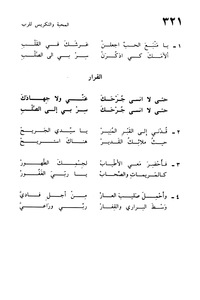 ٣٢١
المحبة والتكريس للرب
١ - يا مَنْبَعَ الحُبِّ اجعلنْ عَرشَكَ في القَلْبِ
آلامَكَ كي اذكُرَنْ سِرْ بي الى الصَّلْبِ
القرار
حتى لا انسى جُرْحَكَ عَنّي ولا جِهادَكَ
حتى لا انسى جُرْحَكَ سِرْ بي إلى الصَّلْبِ
٢ - قُدْني إلى القَبْرِ المُنيرْ يا سيّدي الجَريحْ
حيثُ ملاكُكَ القَديرْ هناكَ استريحْ
٣ - فأُحضِرَ مَعي الأطيابْ لجِسْمِكَ الطَّهورْ
كالمَريماتِ والصِّحابْ يا ربّيَ الغَفورْ
٤ - وأحْمِلَ صَليبَ العارْ مِنْ أجلِ فاديَّ
وَسْطَ البراري والقِفارْ ربّي وراعيَّ